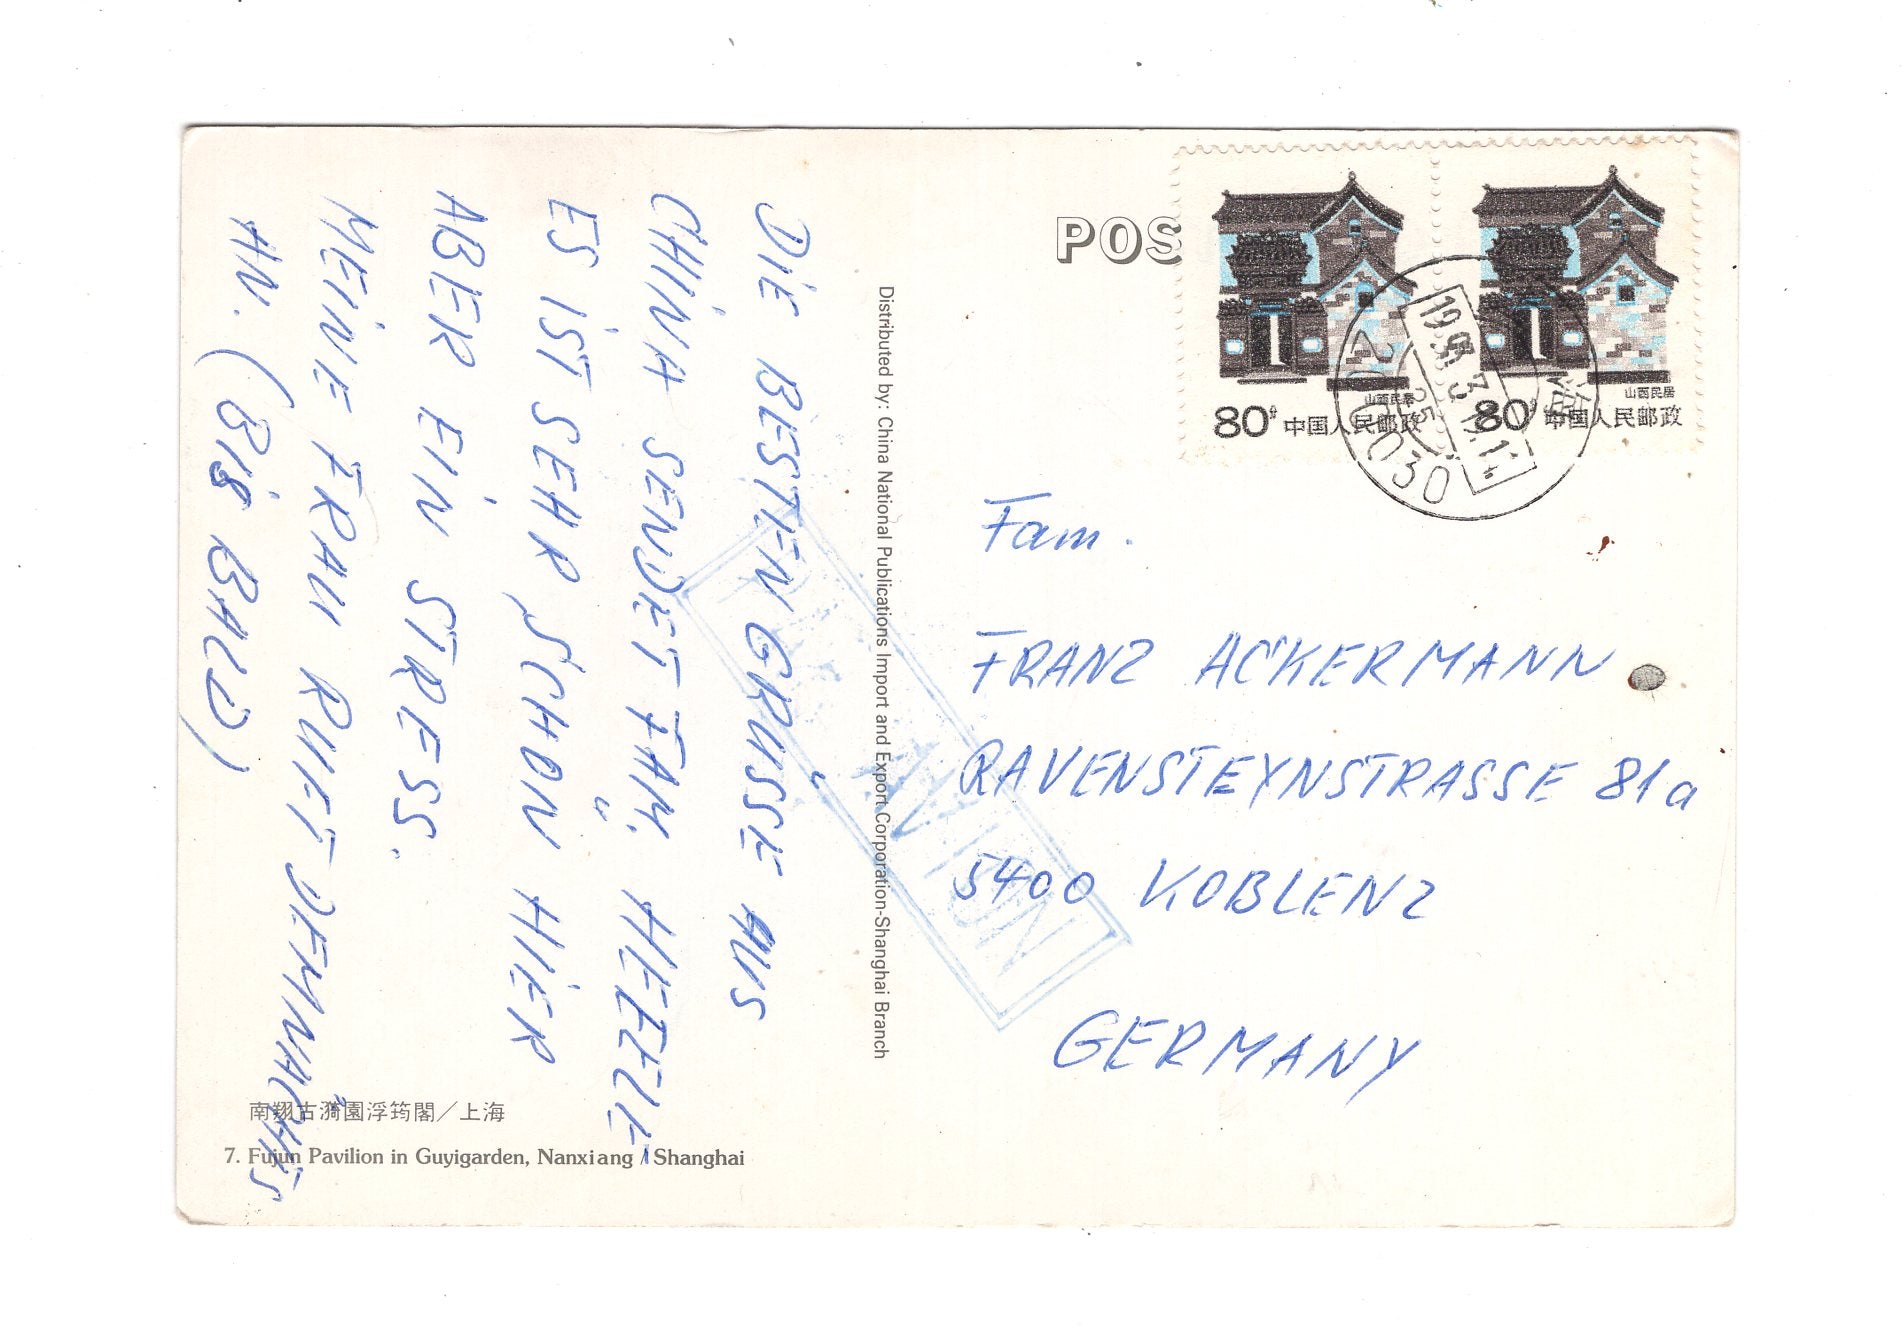 DIE BESTEN GRÜSSE AUS
CHINA SENDET FAM. HEFELE
ES IST SEHR SCHÖN HIER
ABER EIN STRESS.
MEINE FRAU RUFT DEMNÄCHST
AN. (BIS BALD)
南翔古漪園浮筠閣／上海
7. Fujun Pavilion in Guyigarden, Nanxiang / Shanghai
Distributed by: China National Publications Import and Export Corporation-Shanghai Branch
POS
山西民居
80分 中国人民邮政
山西民居
80分 中国人民邮政
海
Fam.
FRANZ ACKERMANN
RAVENSTEYNSTRASSE 81a
5400 KOBLENZ
GERMANY